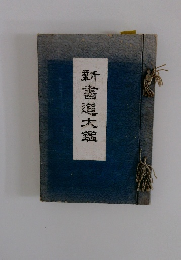 新書道大鑑